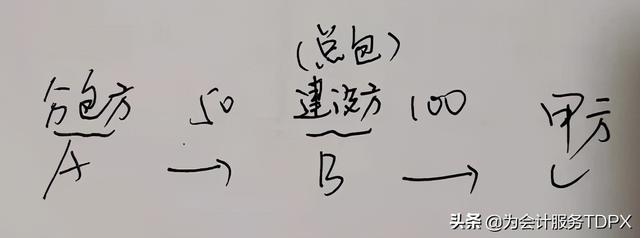 (总包)
分包方 50 建设方 100 甲方
A → B → C
头条 @为会计服务TDPX